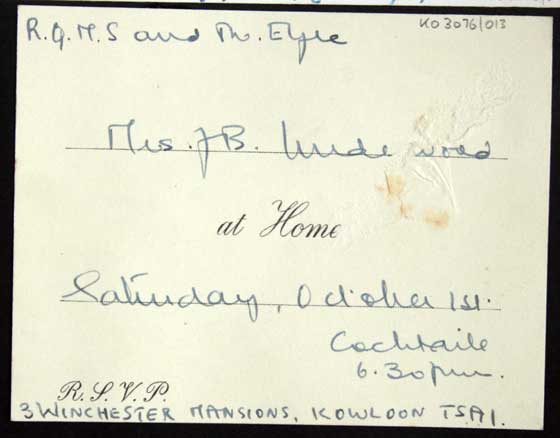 KO 3076/013
R.Q.M.S and Mrs. Eyre
Mrs. J B. Underwood
at Home
Saturday, October 1st.
Cocktails
6.30pm.
R.S.V.P.
3 WINCHESTER MANSIONS, KOWLOON TSAI.